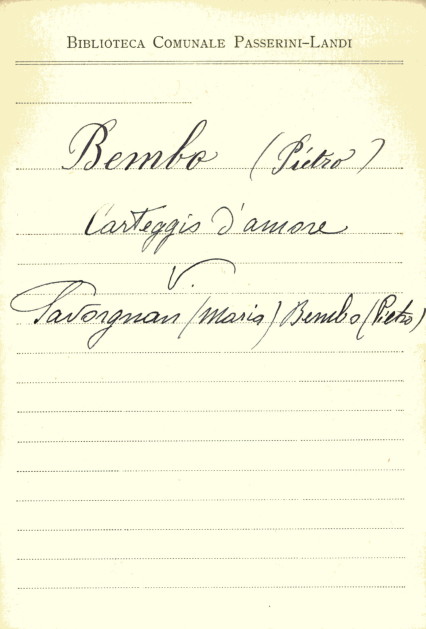 Biblioteca Comunale Passerini-Landi
Bembo (Pietro)
Carteggio d'amore
V.
Savorgnan (Maria) Bembo (Pietro)